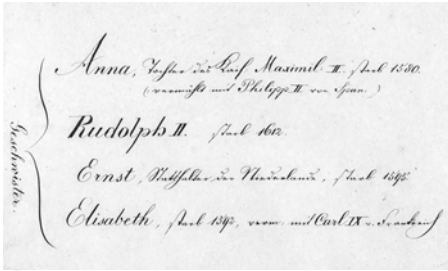 Anna, Tochter des Kais. Maximil. II. starb 1580.
(vermählt mit Philipp II von Span.)
Rudolph II. starb 1612.
Ernst, Statthalter der Niederlande, starb 1595
Elisabeth, starb 1592, verm. mit Carl IX v. Frankreich
Geschwister.